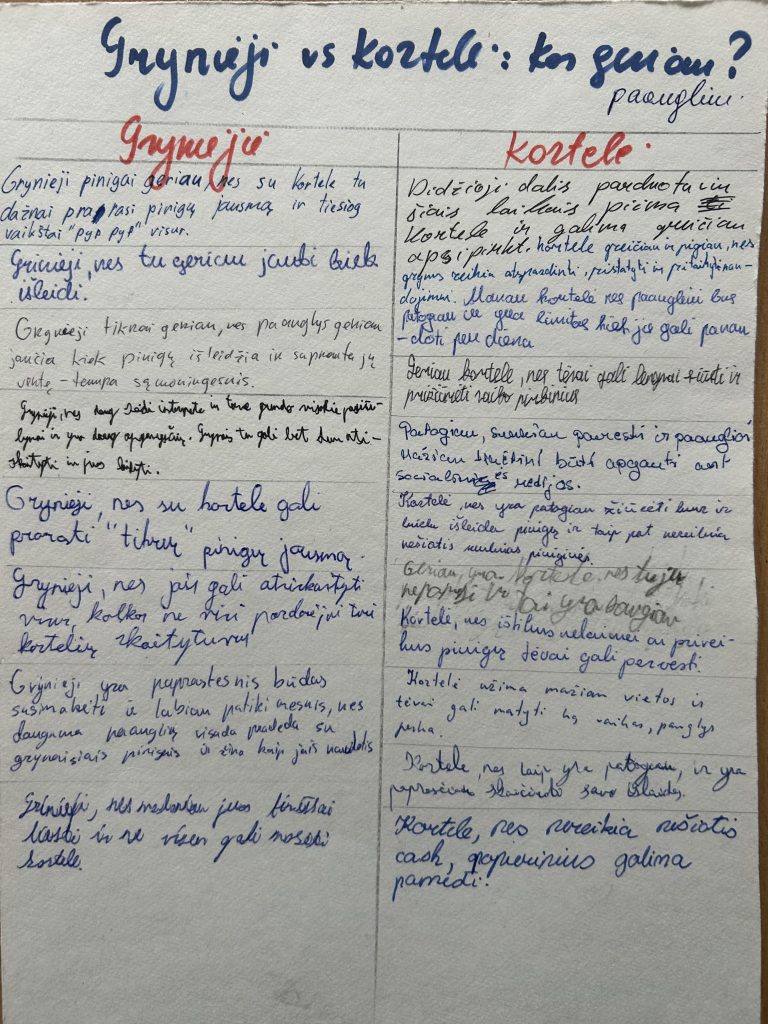 Grynieji vs kortelė: kas geriau?
paaugliui.
Grynieji
Grynieji pinigai geriau, nes su kortele tu
dažnai prarasi pinigų jausmą ir tiesiog
vaikštai "pyp pyp" visur.
Grinieji, nes tu geriau jauti kiek
išleidi.
Grynieji tikrai geriau, nes paauglys geriau
jaučia kiek pinigų išleidžia ir supranta jų
vertę - tampa sąmoningesnis.
Grynieji, nes daug žaidi internete ir tave
ir yra daug apgavysčių. Grynais tu gali bet kam ati-
skaityti ir juos
Grynieji, nes su kortele gali
prarasti "tikrų" pinigų jausmą.
Grynieji, nes jais gali atsiskaityti
visur, kolkas ne visi pardavėjai turi
kortelių skaitytuvus
Grynieji yra paprastesnis būdas
susimokėti ir labiau patikimesnis, nes
dauguma paauglių visada pradeda su
grynaisiais pinigais ir žino kaip jais naudotis
Grinieji, nes
ir ne visen gali
kortele.
Kortelė
Didžioji dalis parduotuvių
šiais laikais priima
kortele ir galima greičiau
apsipirkt. kortele greičiau ir pigiau, nes
grynus reikia atspausdinti, pristatyti ir pritaikyti nau-
dojimui. Manau kortelė nes paaugliui bus
patogiau ir yra limitas kiek ją gali panau-
doti per dieną
Geriau kortelė, nes tėvai gali lengvai siųsti ir
prižiūrėti vaiko pirkinius
Patogiau, sunkiau pamesti ir paaugliai
mažiau būti apgauti ant
socialinės medijos.
Kortelė, nes yra patogiau žiūrėti kur ir
kiek išleidai pinigų ir taip pat nereikia
nešiotis sunkias piniginės.
Geriau, yra kortelė, nes
ir tai yra saugiau
Kortelė, nes ištikus nelaimei ar prirei-
kus pinigų tėvai gali pervesti.
Kortelė užima mažiau vietos ir
tėvai gali matyti ką vaikas, paauglys
perka.
Kortelė, nes taip yra patogiau, ir yra
paprasčiau skaičiuoti savo išlaidas.
Kortelė, nes nereikia nešiotis
cash, popierinius galima
pamesti.